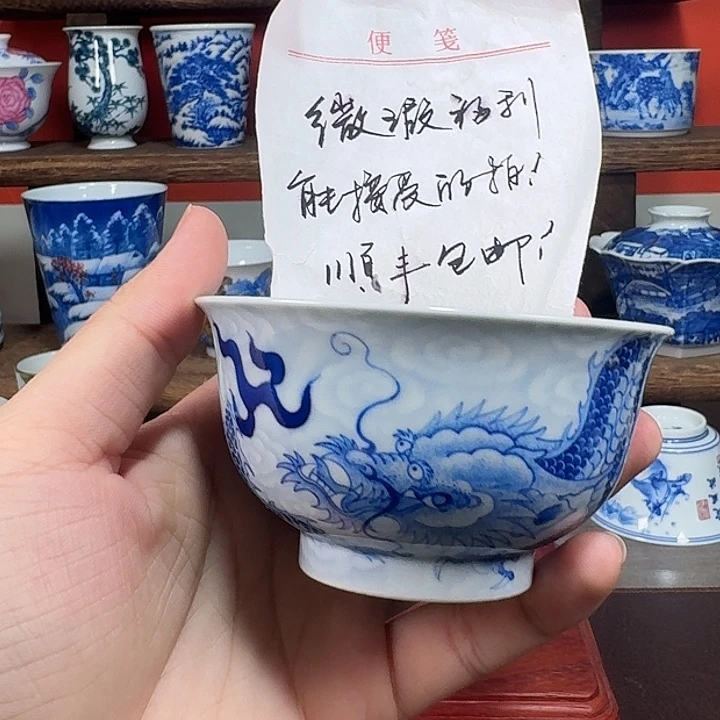 便笺
微瑕福利
能接受的拍!
顺丰包邮!